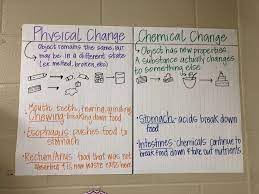 Physical Change
Object remains the same, but
may be in a different state
(ex. melted, broken, etc)
Mouth: teeth, tearing, grinding
Chewing- breaking down food
Esophagus: pushes food to
stomach
Rectum/Anus: food that was not
absorbed & is now waste exits here
Chemical Change
Object has new properties
A substance actually changes
to something else
Stomach- acids break down
food
Intestines: chemicals continue to
break down food & take out nutrients.